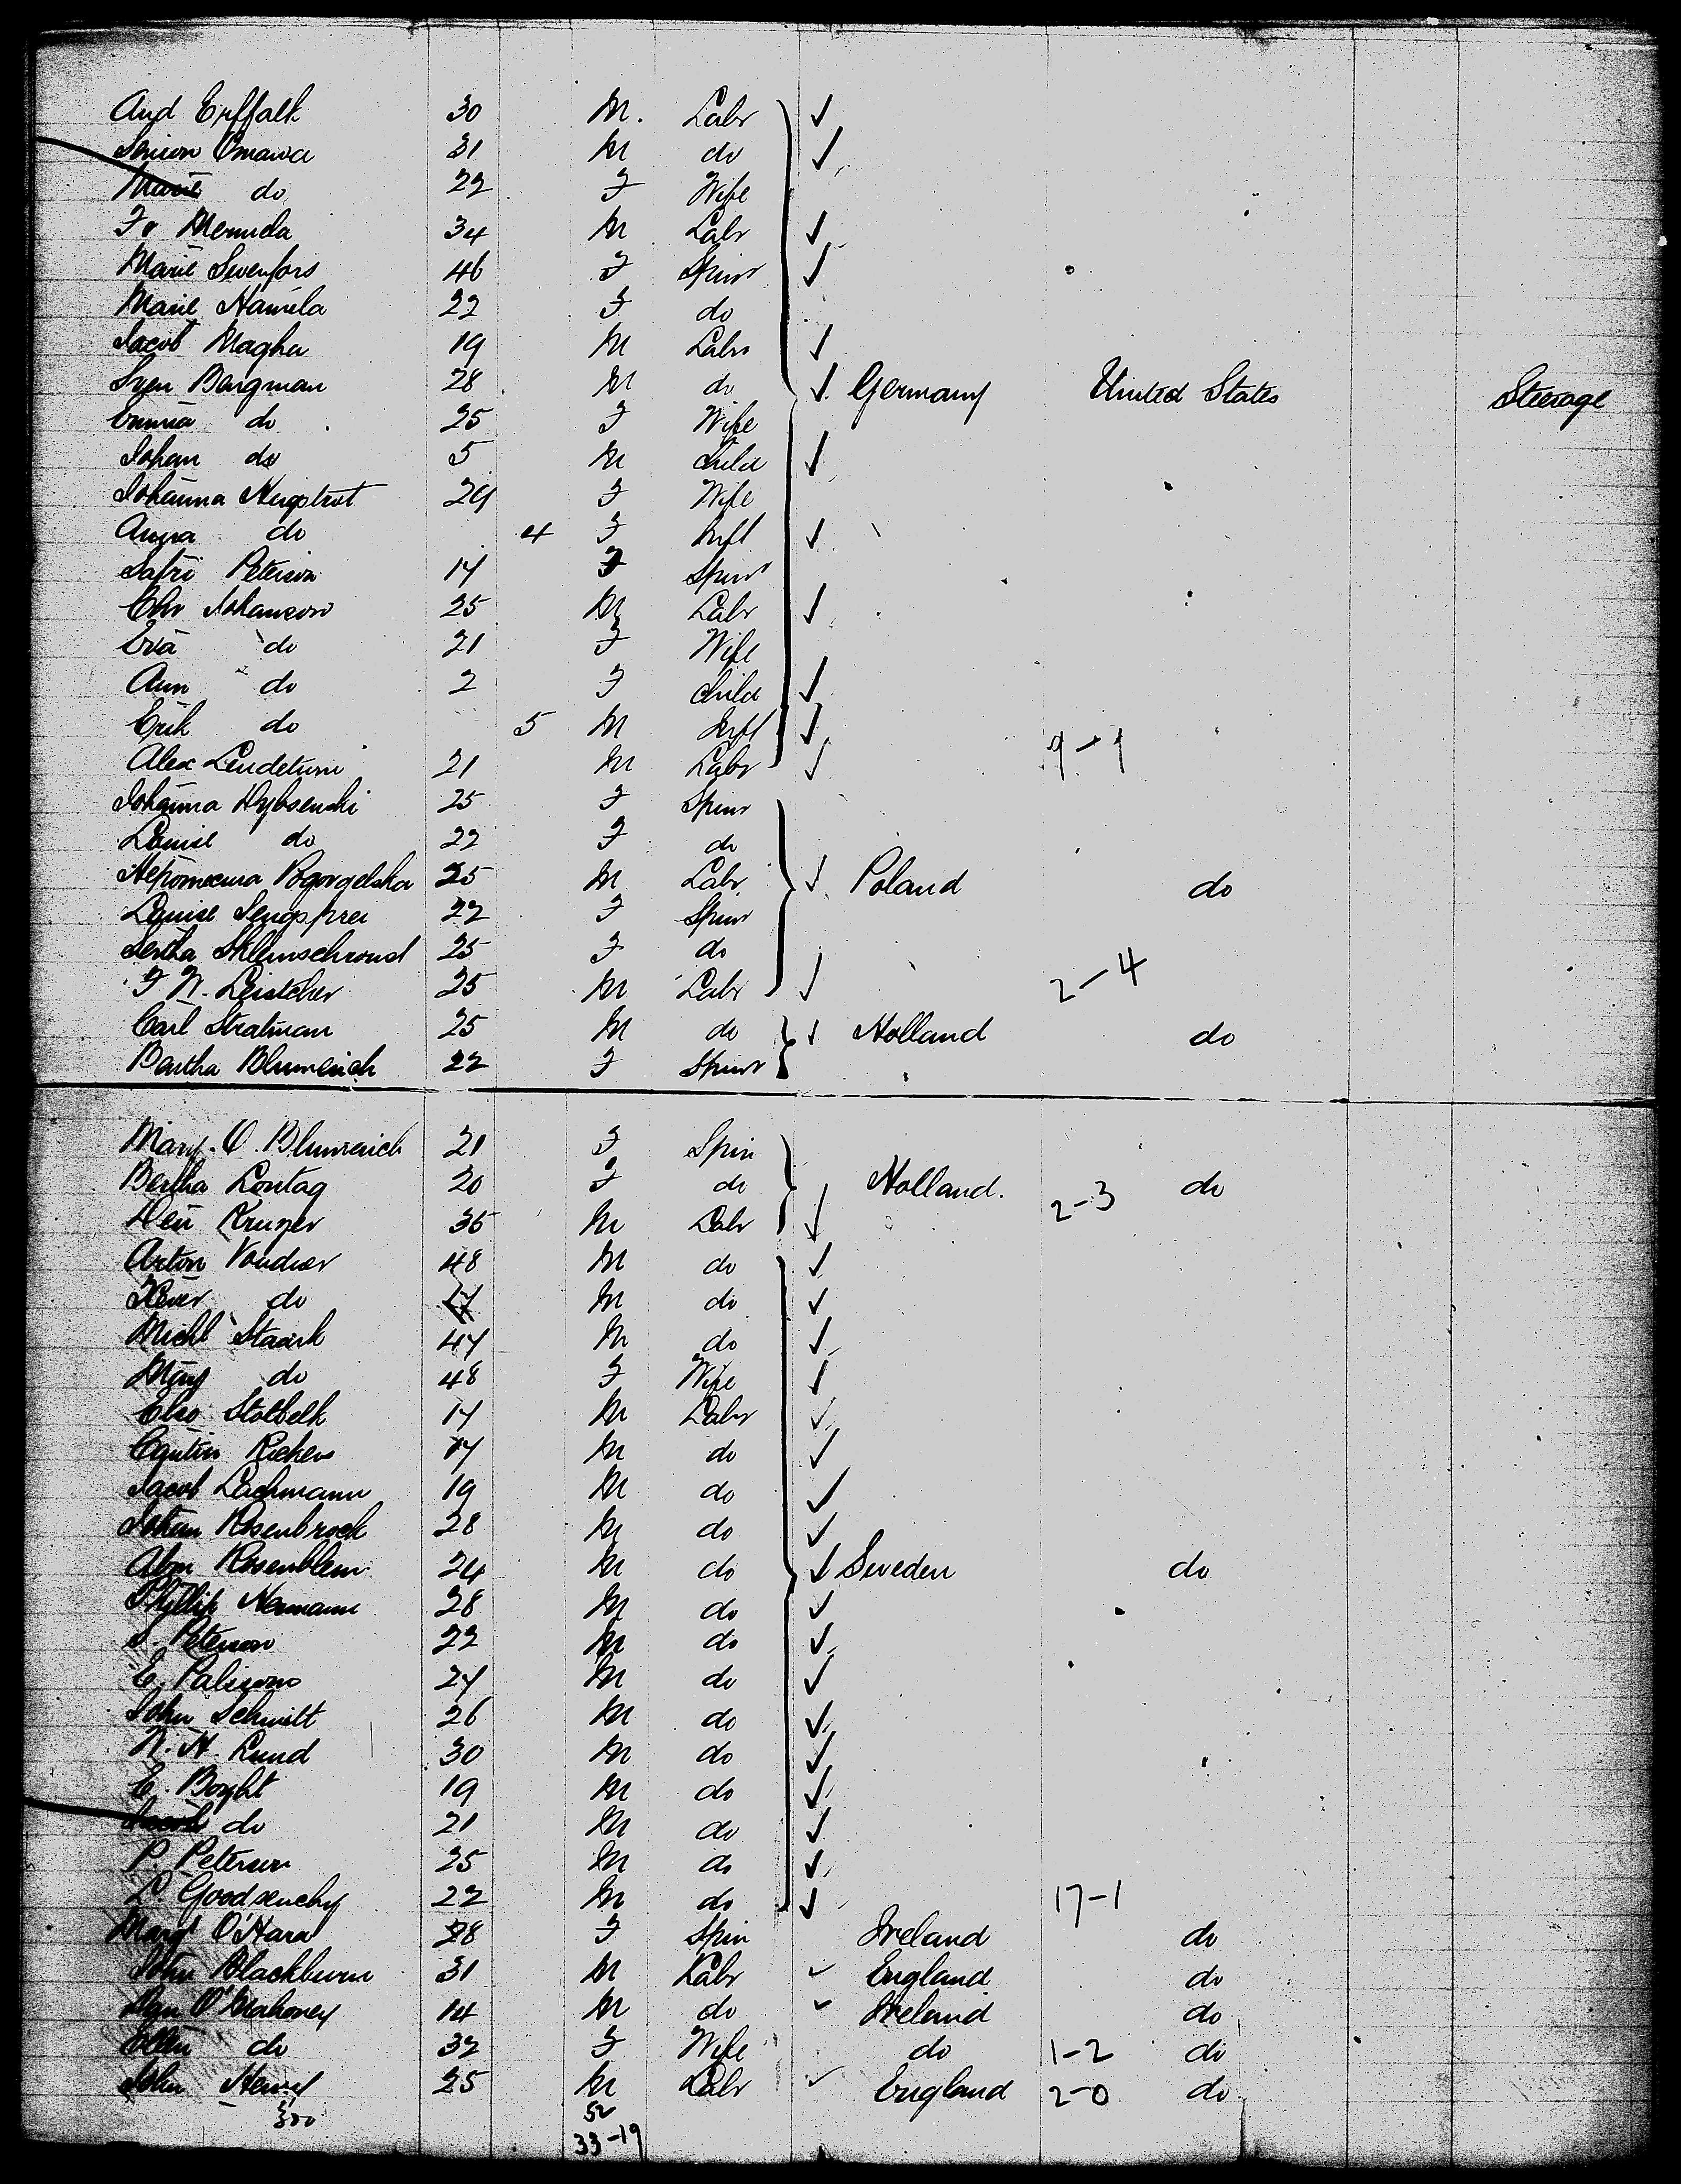 And Erffalk 30 M. Labr
Simon Omawa 31 M do
Marie do 22 F Wife
Fr Memida 34 M Labr
Marie Swenfors 46 F Spinr
Marie Hamila 22 F do
Jacob Magha 19 M Labr
Sven Bargman 28 M do Germany United States Steerage
Emma do 25 F Wife
Johan do 5 M Child
Johanna 29 F Wife
Anna do 4 F Inft
Safri Peterson 17 F Spinr
Chr Johanson 25 M Labr
Eva do 21 F Wife
Ann do 2 F Child
Erik do 5 M Inft
Alex 21 M Labr 9-9
Johanna 25 F Spinr
Louise do 22 F do
25 M Labr Poland do
Louise 22 F Spinr
25 F do
F N. Leistcher 25 M Labr 2-4
Carl Stratman 25 M do Holland do
Bartha Blumerich 22 F Spinr
Mary. O. Blumerich 21 F Spin
Bertha Lontag 20 F do Holland. 2-3 do
Hen Kruger 35 M Labr
Anton 48 M do
do M do
Michl Staark 47 M do
Mary do 48 F Wife
Stolbelk 17 M Labr
Rickers 17 M do
Jacob Lachmann 19 M do
Johan Rosenbrock 28 M do
Abm Rosenblem 24 M do Sweden do
Phillip Hermann 28 M do
S. Peterson 22 M do
E. Palisono 27 M do
John Schmitt 26 M do
N. H. Lund 30 M do
E. Boyht 19 M do
Jacob do 21 M do
P. Peterson 25 M do
L. Goodsenchy 22 M do 17-1
Mary O'Hara 28 F Spin Ireland do
John Blackburn 31 M Labr England do
O'Mahoney 14 M do Ireland do
Ellen do 32 F Wife do 1-2 do
John Henry 25 M Labr England 2-0 do
300 52
33-19